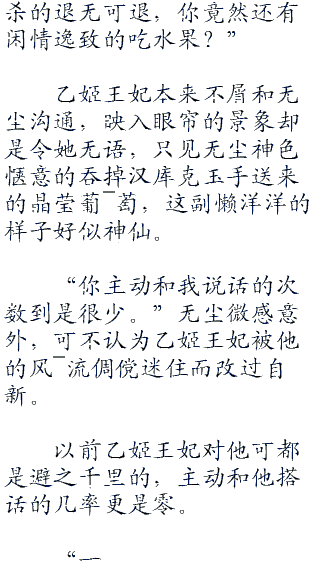 杀的退无可退，你竟然还有
闲情逸致的吃水果？”
乙姬王妃本来不屑和无
尘沟通，映入眼帘的景象却
是令她无语，只见无尘神色
惬意的吞掉汉库克玉手送来
的晶莹葡¯萄，这副懒洋洋的
样子好似神仙。
“你主动和我说话的次
数到是很少。”无尘微感意
外，可不认为乙姬王妃被他
的风¯流倜傥迷住而改过自
新。
以前乙姬王妃对他可都
是避之千里的，主动和他搭
话的几率更是零。